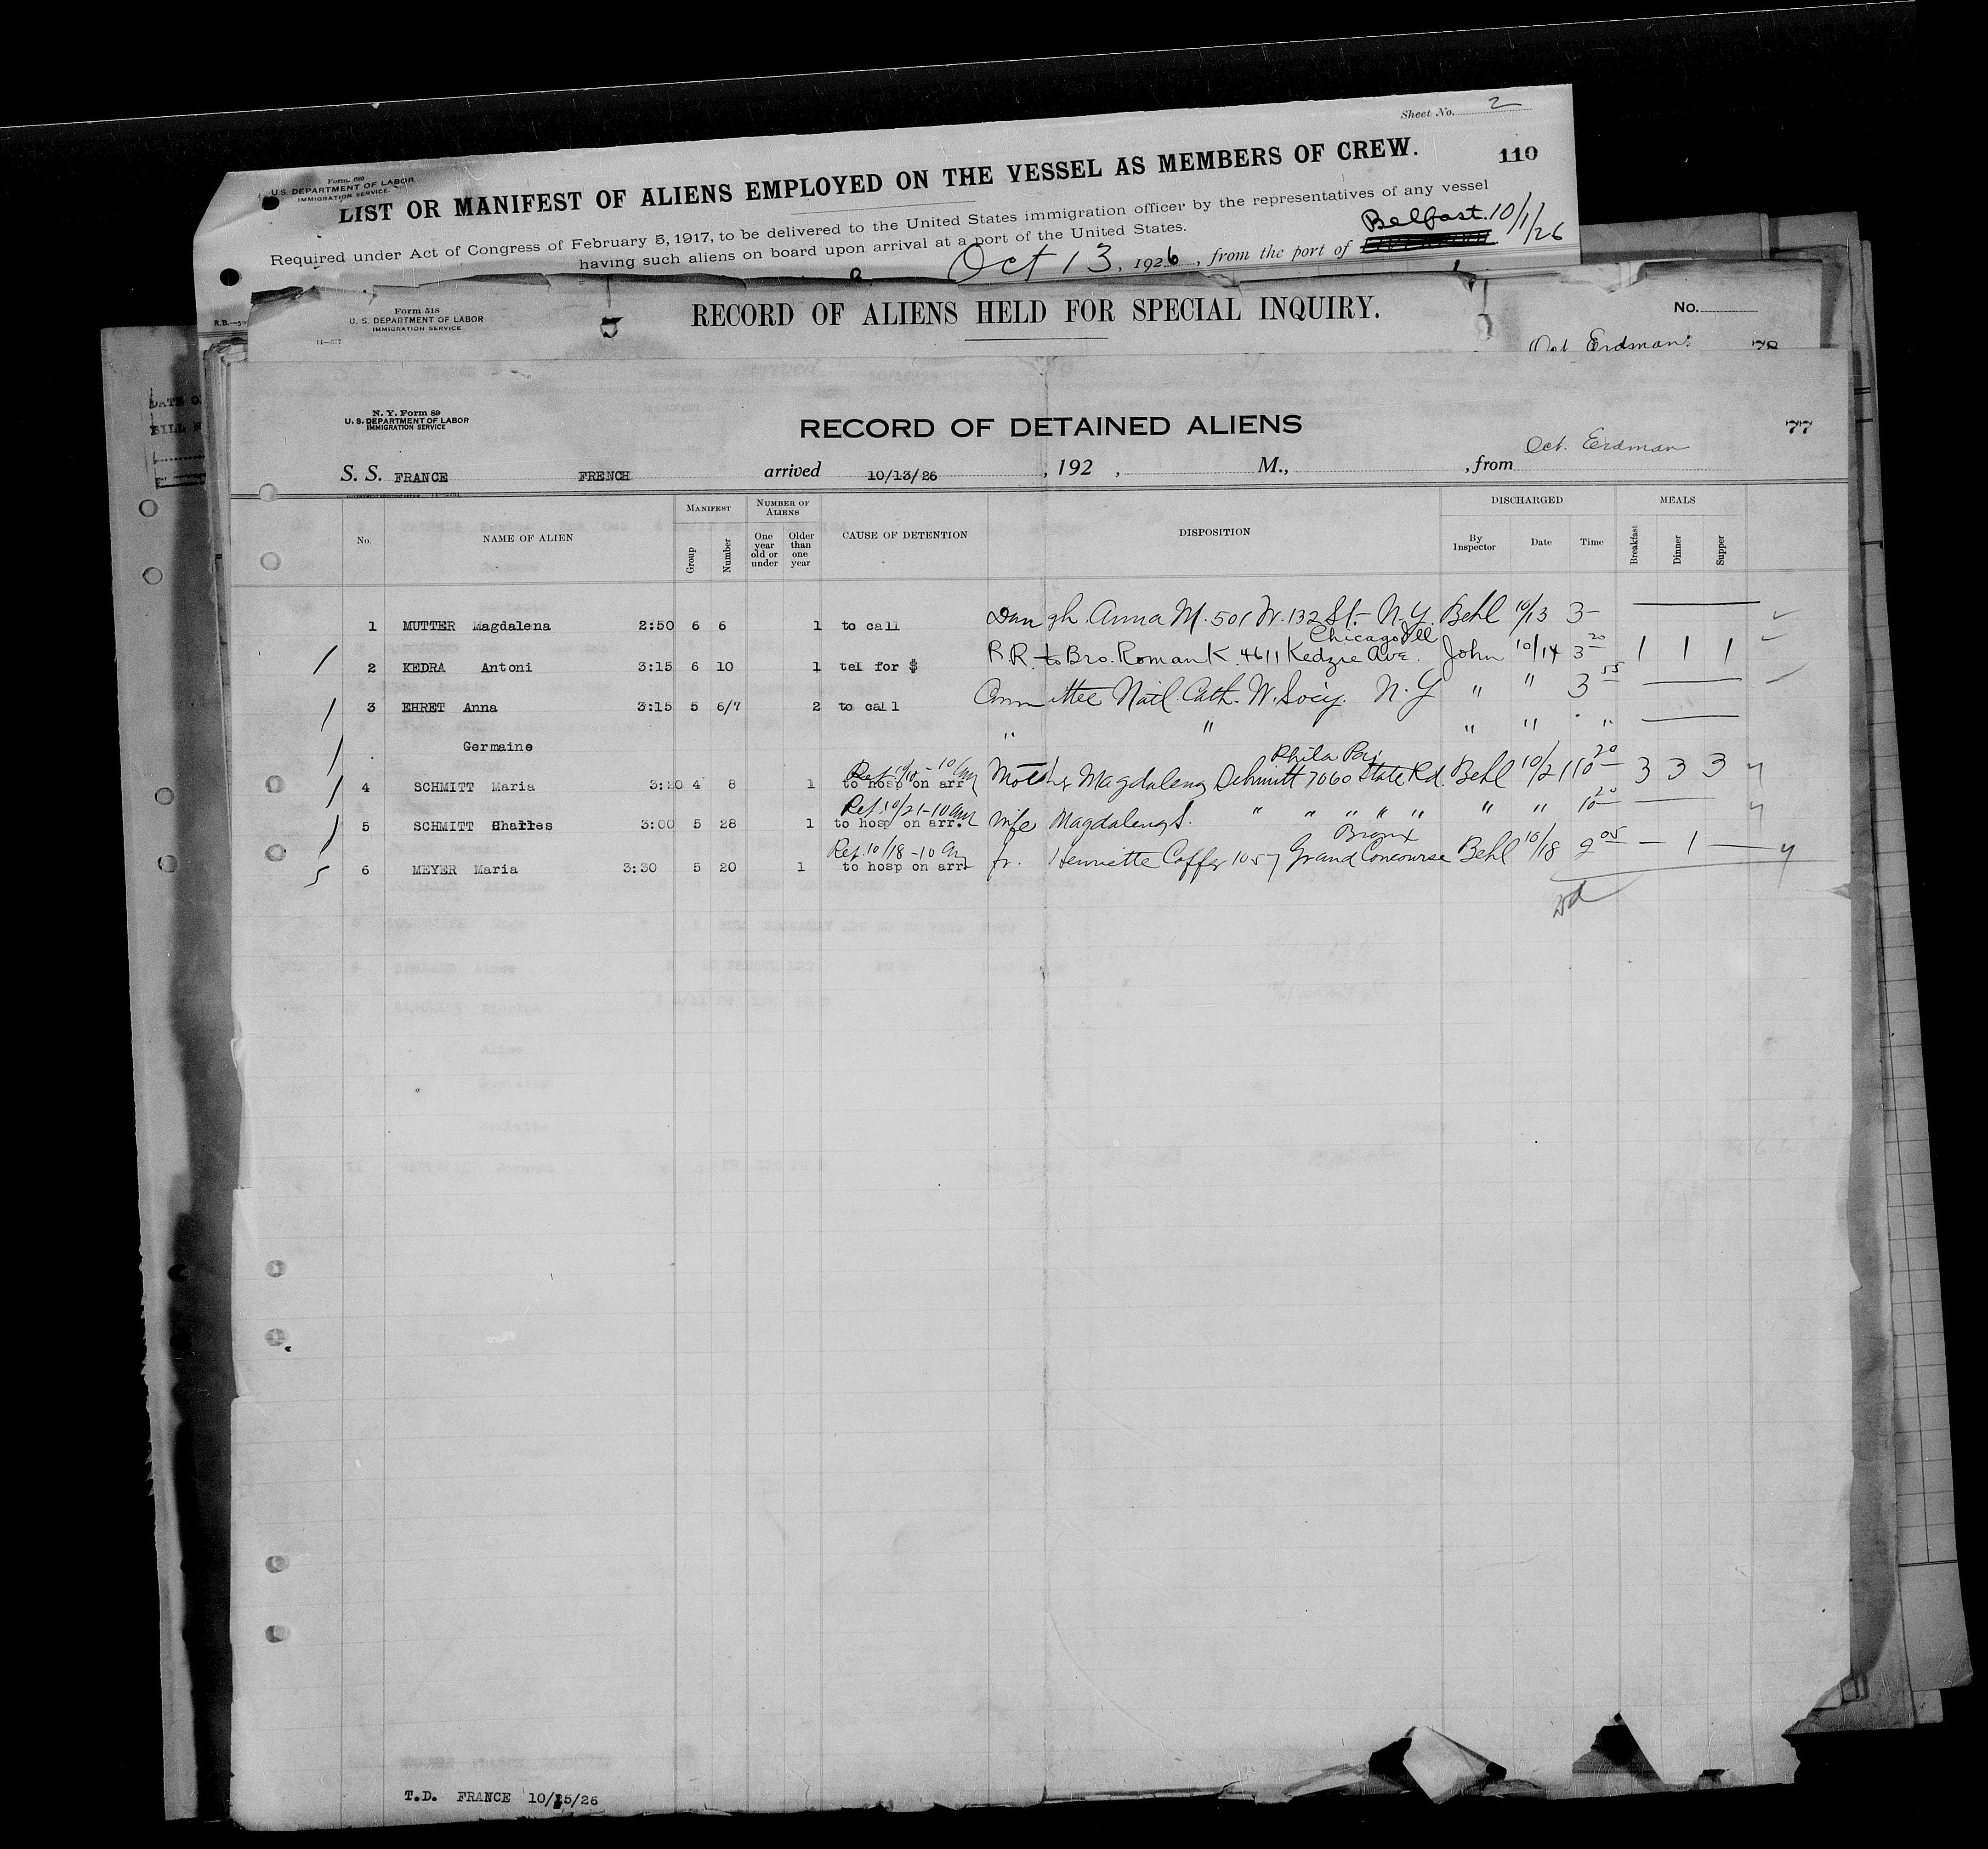 Sheet No. 2
Form 680
U. S. DEPARTMENT OF LABOR
IMMIGRATION SERVICE
110
LIST OR MANIFEST OF ALIENS EMPLOYED ON THE VESSEL AS MEMBERS OF CREW.
Required under Act of Congress of February 5, 1917, to be delivered to the United States immigration officer by the representatives of any vessel
having such aliens on board upon arrival at a port of the United States.
Oct 13, 1926, from the port of Belfast. 10/1/26
Form 518
U. S. DEPARTMENT OF LABOR
IMMIGRATION SERVICE
RECORD OF ALIENS HELD FOR SPECIAL INQUIRY.
No.
Erdman
78
N. Y. Form 89
U. S. DEPARTMENT OF LABOR
IMMIGRATION SERVICE
RECORD OF DETAINED ALIENS
77
Erdman
S. S. FRANCE FRENCH arrived 10/13/26, 192 , M., , from
No. NAME OF ALIEN MANIFEST Group Number NUMBER OF ALIENS One year old or under Older than one year CAUSE OF DETENTION DISPOSITION DISCHARGED By Inspector Date Time MEALS Breakfast Dinner Supper
1 MUTTER Magdalena 2:50 6 6 1 to call Daugh. Anna M. 501 W. 132 St. - N.Y. Behl 10/13 3-
Chicago Ill
2 KEDRA Antoni 3:15 6 10 1 tel for $ R.R. to Bro. Roman K. 4611 Kedzie Ave. John 10/14 3 20 1 1 1
3 EHRET Anna 3:15 5 6/7 2 to call Natl. Cath. W. Socy. N.Y " " 3 55
Germaine " " " "
Phila
4 SCHMITT Maria 3:20 4 8 1 to hosp on arr Mother Magdalena Schmitt 7060 State Rd. Behl 10/21 10 20 3 3 3
Ret. 10/21-10 am
5 SCHMITT Charles 3:00 5 28 1 to hosp on arr. Wife Magdalena S. " " " " " " " 10 20
Ret. 10/18-10 am Bronx
6 MEYER Maria 3:30 5 20 1 to hosp on arr. fr. Henriette 1057 Grand Concourse Behl 10/18 2 05 - 1 -
T.D. FRANCE 10/15/26